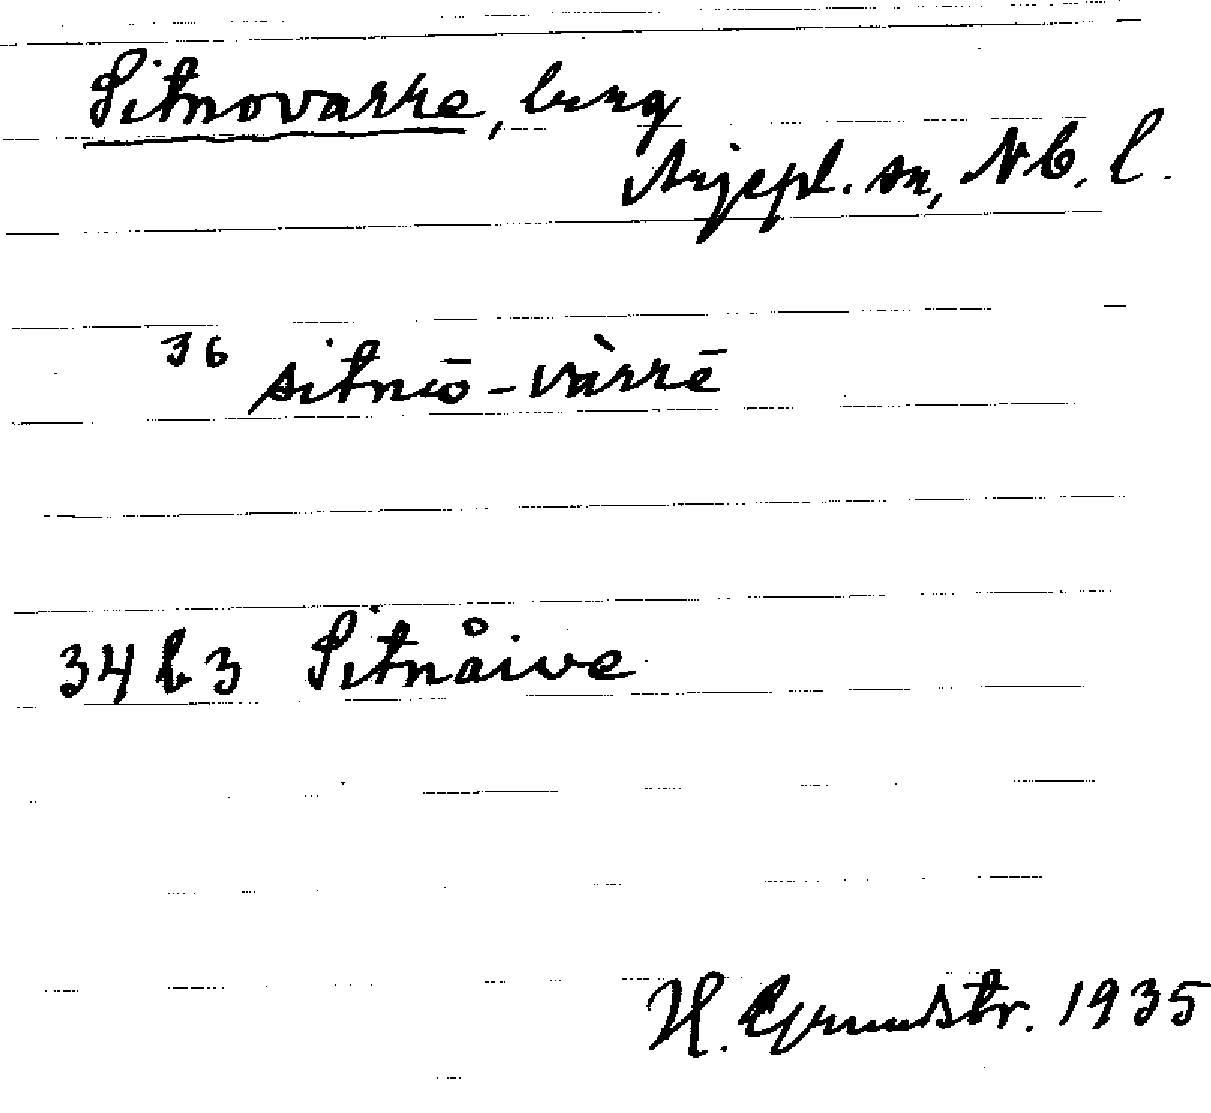 Sitnovarre, berg
Arjepl. sn, Nb. l.
36 sitnō-vàrrē
34 b 3 Sitnåive
H. Grundstr. 1935